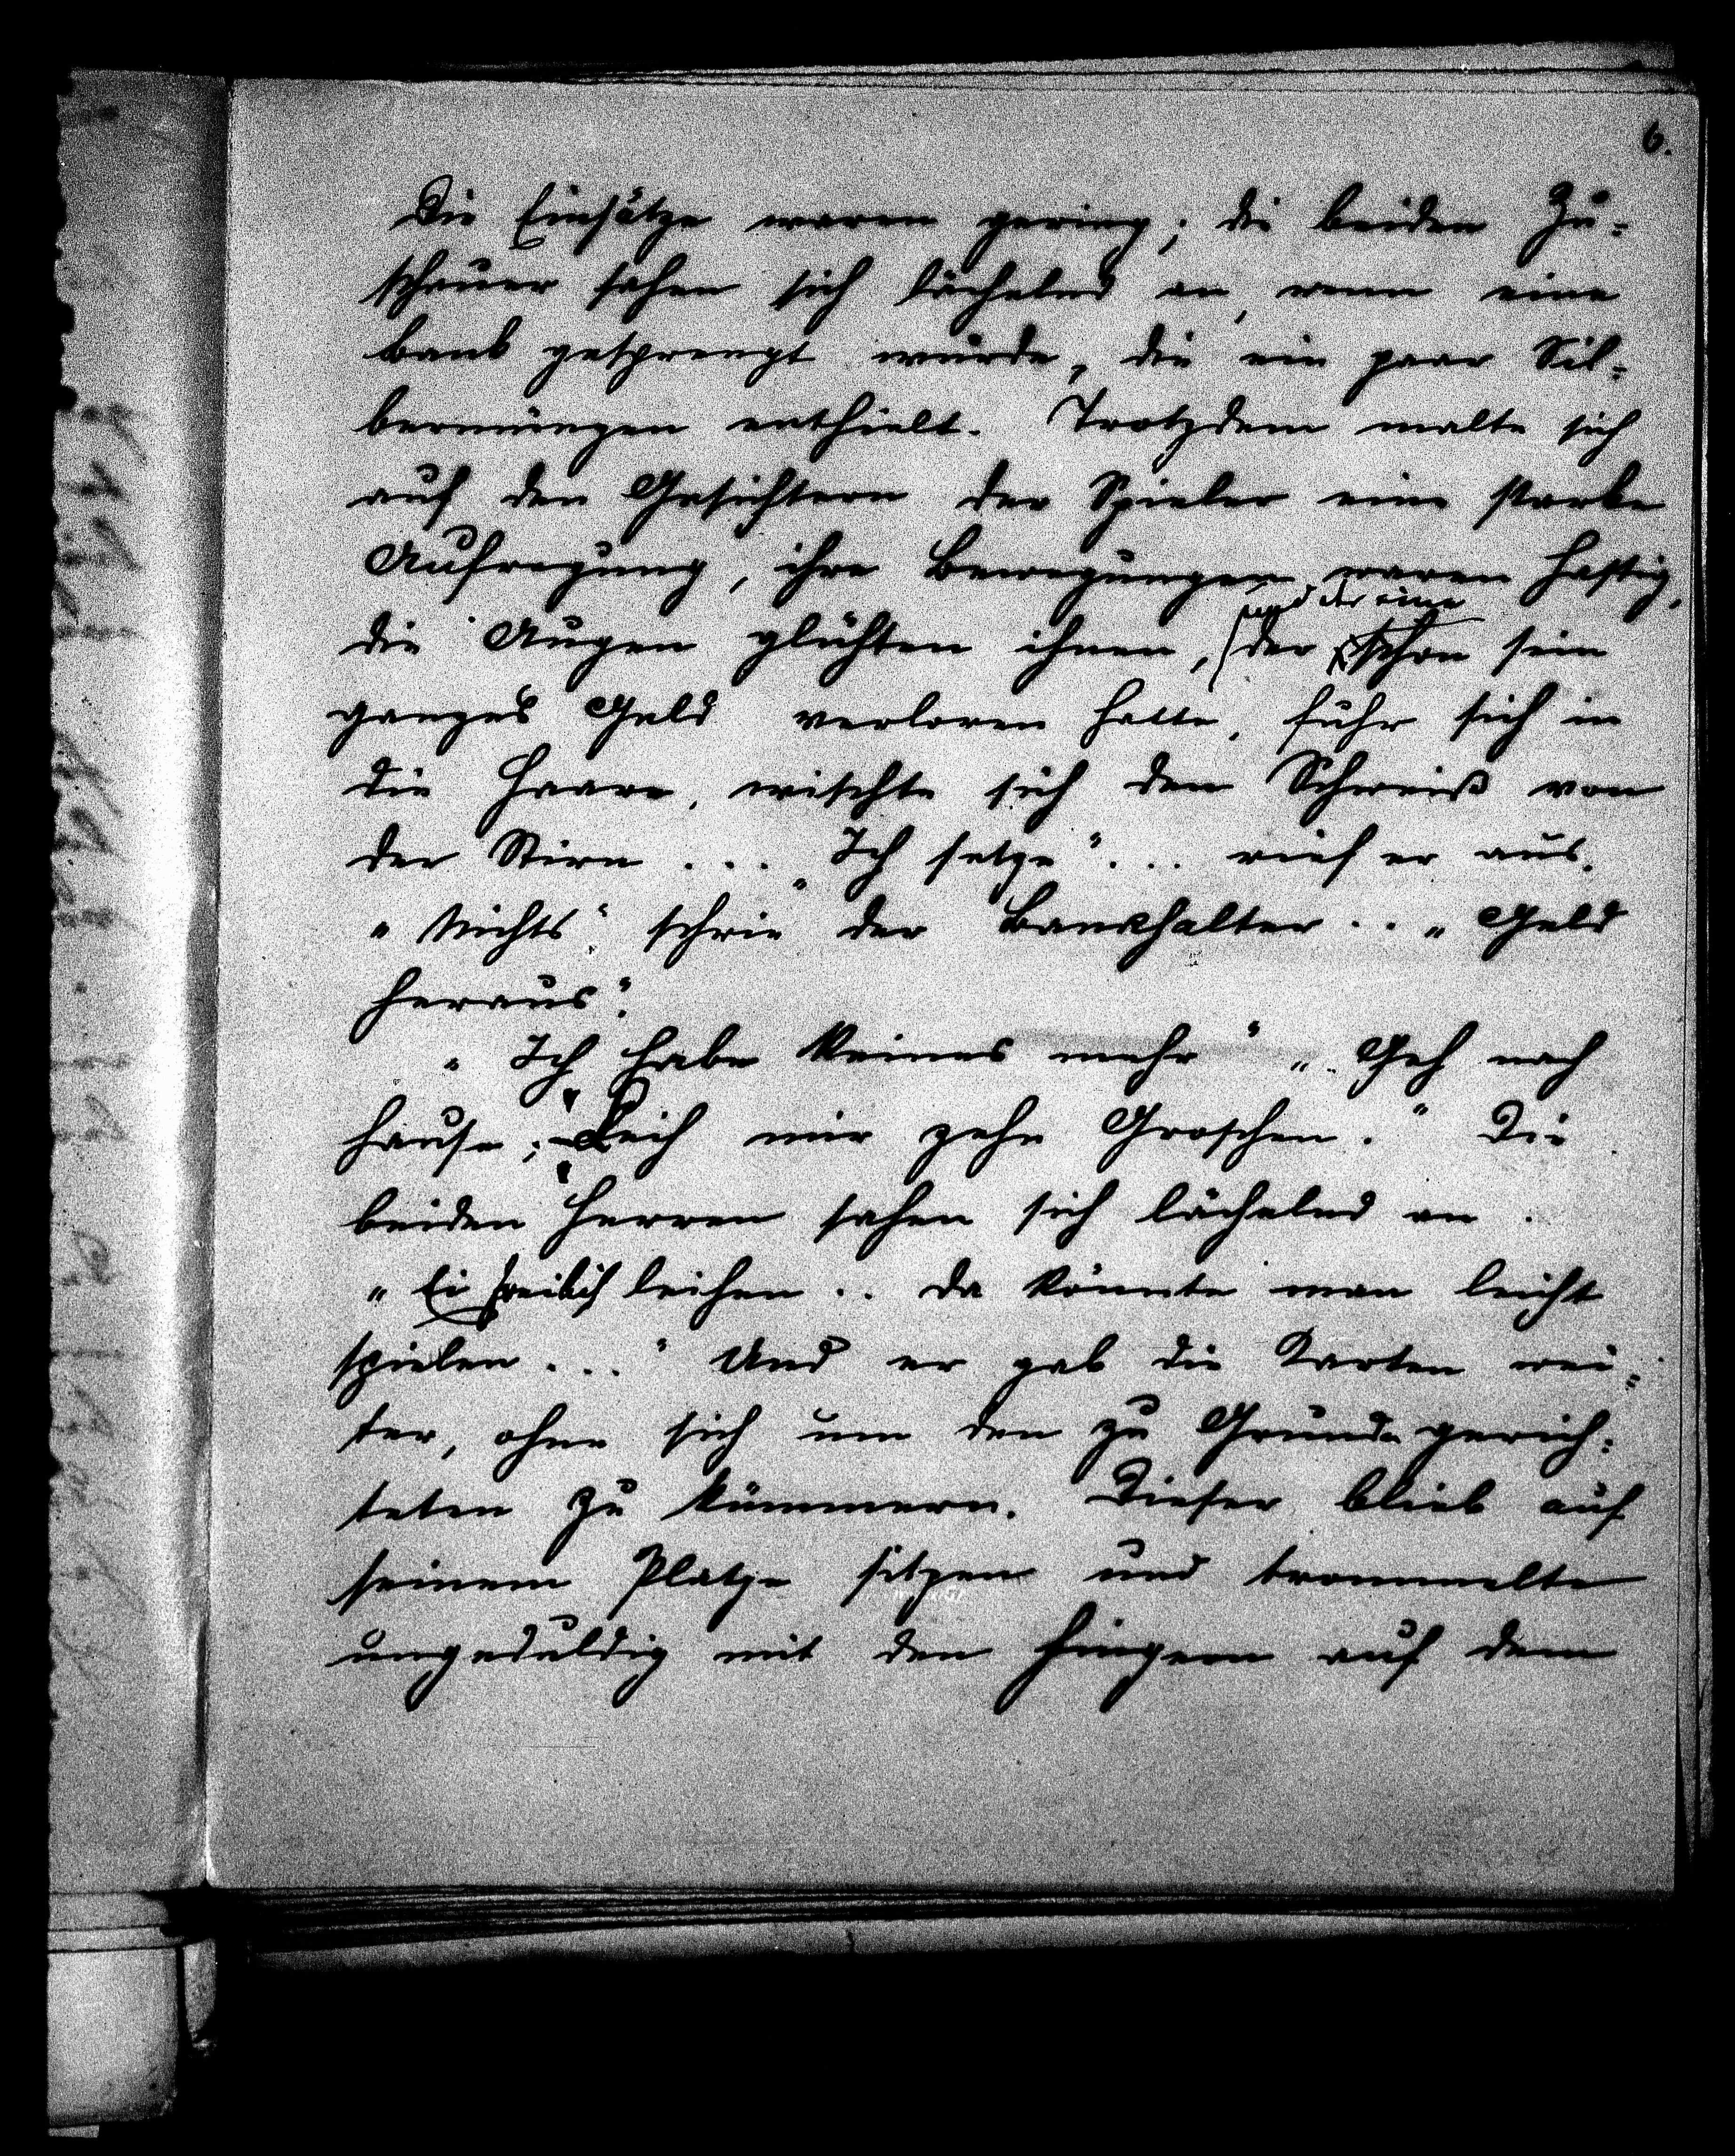 6.
Die Einsätze waren gering; die beiden Zu=
schauer sahen sich lächelnd an, wenn eine
Bank gesprengt wurde, die ein paar Sil=
bermünzen enthielt. Trotzdem malte sich
auf den Gesichtern der Spieler eine starke
Aufregung, ihre Bewegungen waren hastig,
und der eine
die Augen glühten ihnen, der schon sein
ganzes Geld verloren hatte, fuhr sich in
die Haare, wischte sich den Schweiß von
der Stirn ... „Ich setze“... rief er aus.
„Nichts“ schrie der Bankhalter .. „Geld
heraus“.
„Ich habe keines mehr“ „Geh nach
Hause; – Leih mir zehn Groschen.“ Die
beiden Herren sahen sich lächelnd an.
„Ei freilich leihen .. da könnte man leicht
spielen ...“ Und er gab die Karten wei=
ter, ohne sich um den zu Grunde gerich=
teten zu kümmern. Dieser blieb auf
seinem Platze sitzen und trommelte
ungeduldig mit den Fingern auf dem